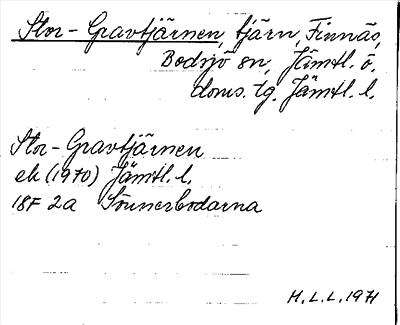 Stor-Gravtjärnen, tjärn, Finnäs,
Bodsjö sn, Jämtl. ö.
doms. tg. Jämtl. l.
Stor-Gravtjärnen
ek (1970) Jämtl. l.
18F 2a Sönnerbodarna
H.L.L. 1971